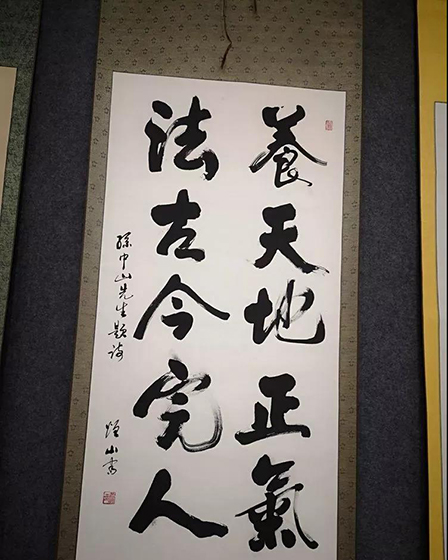 養天地正氣
法古今完人
孫中山先生題詞
山書